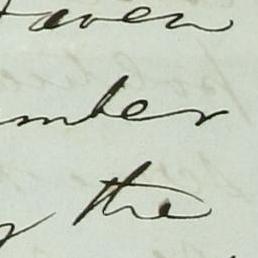 aven
mber
the